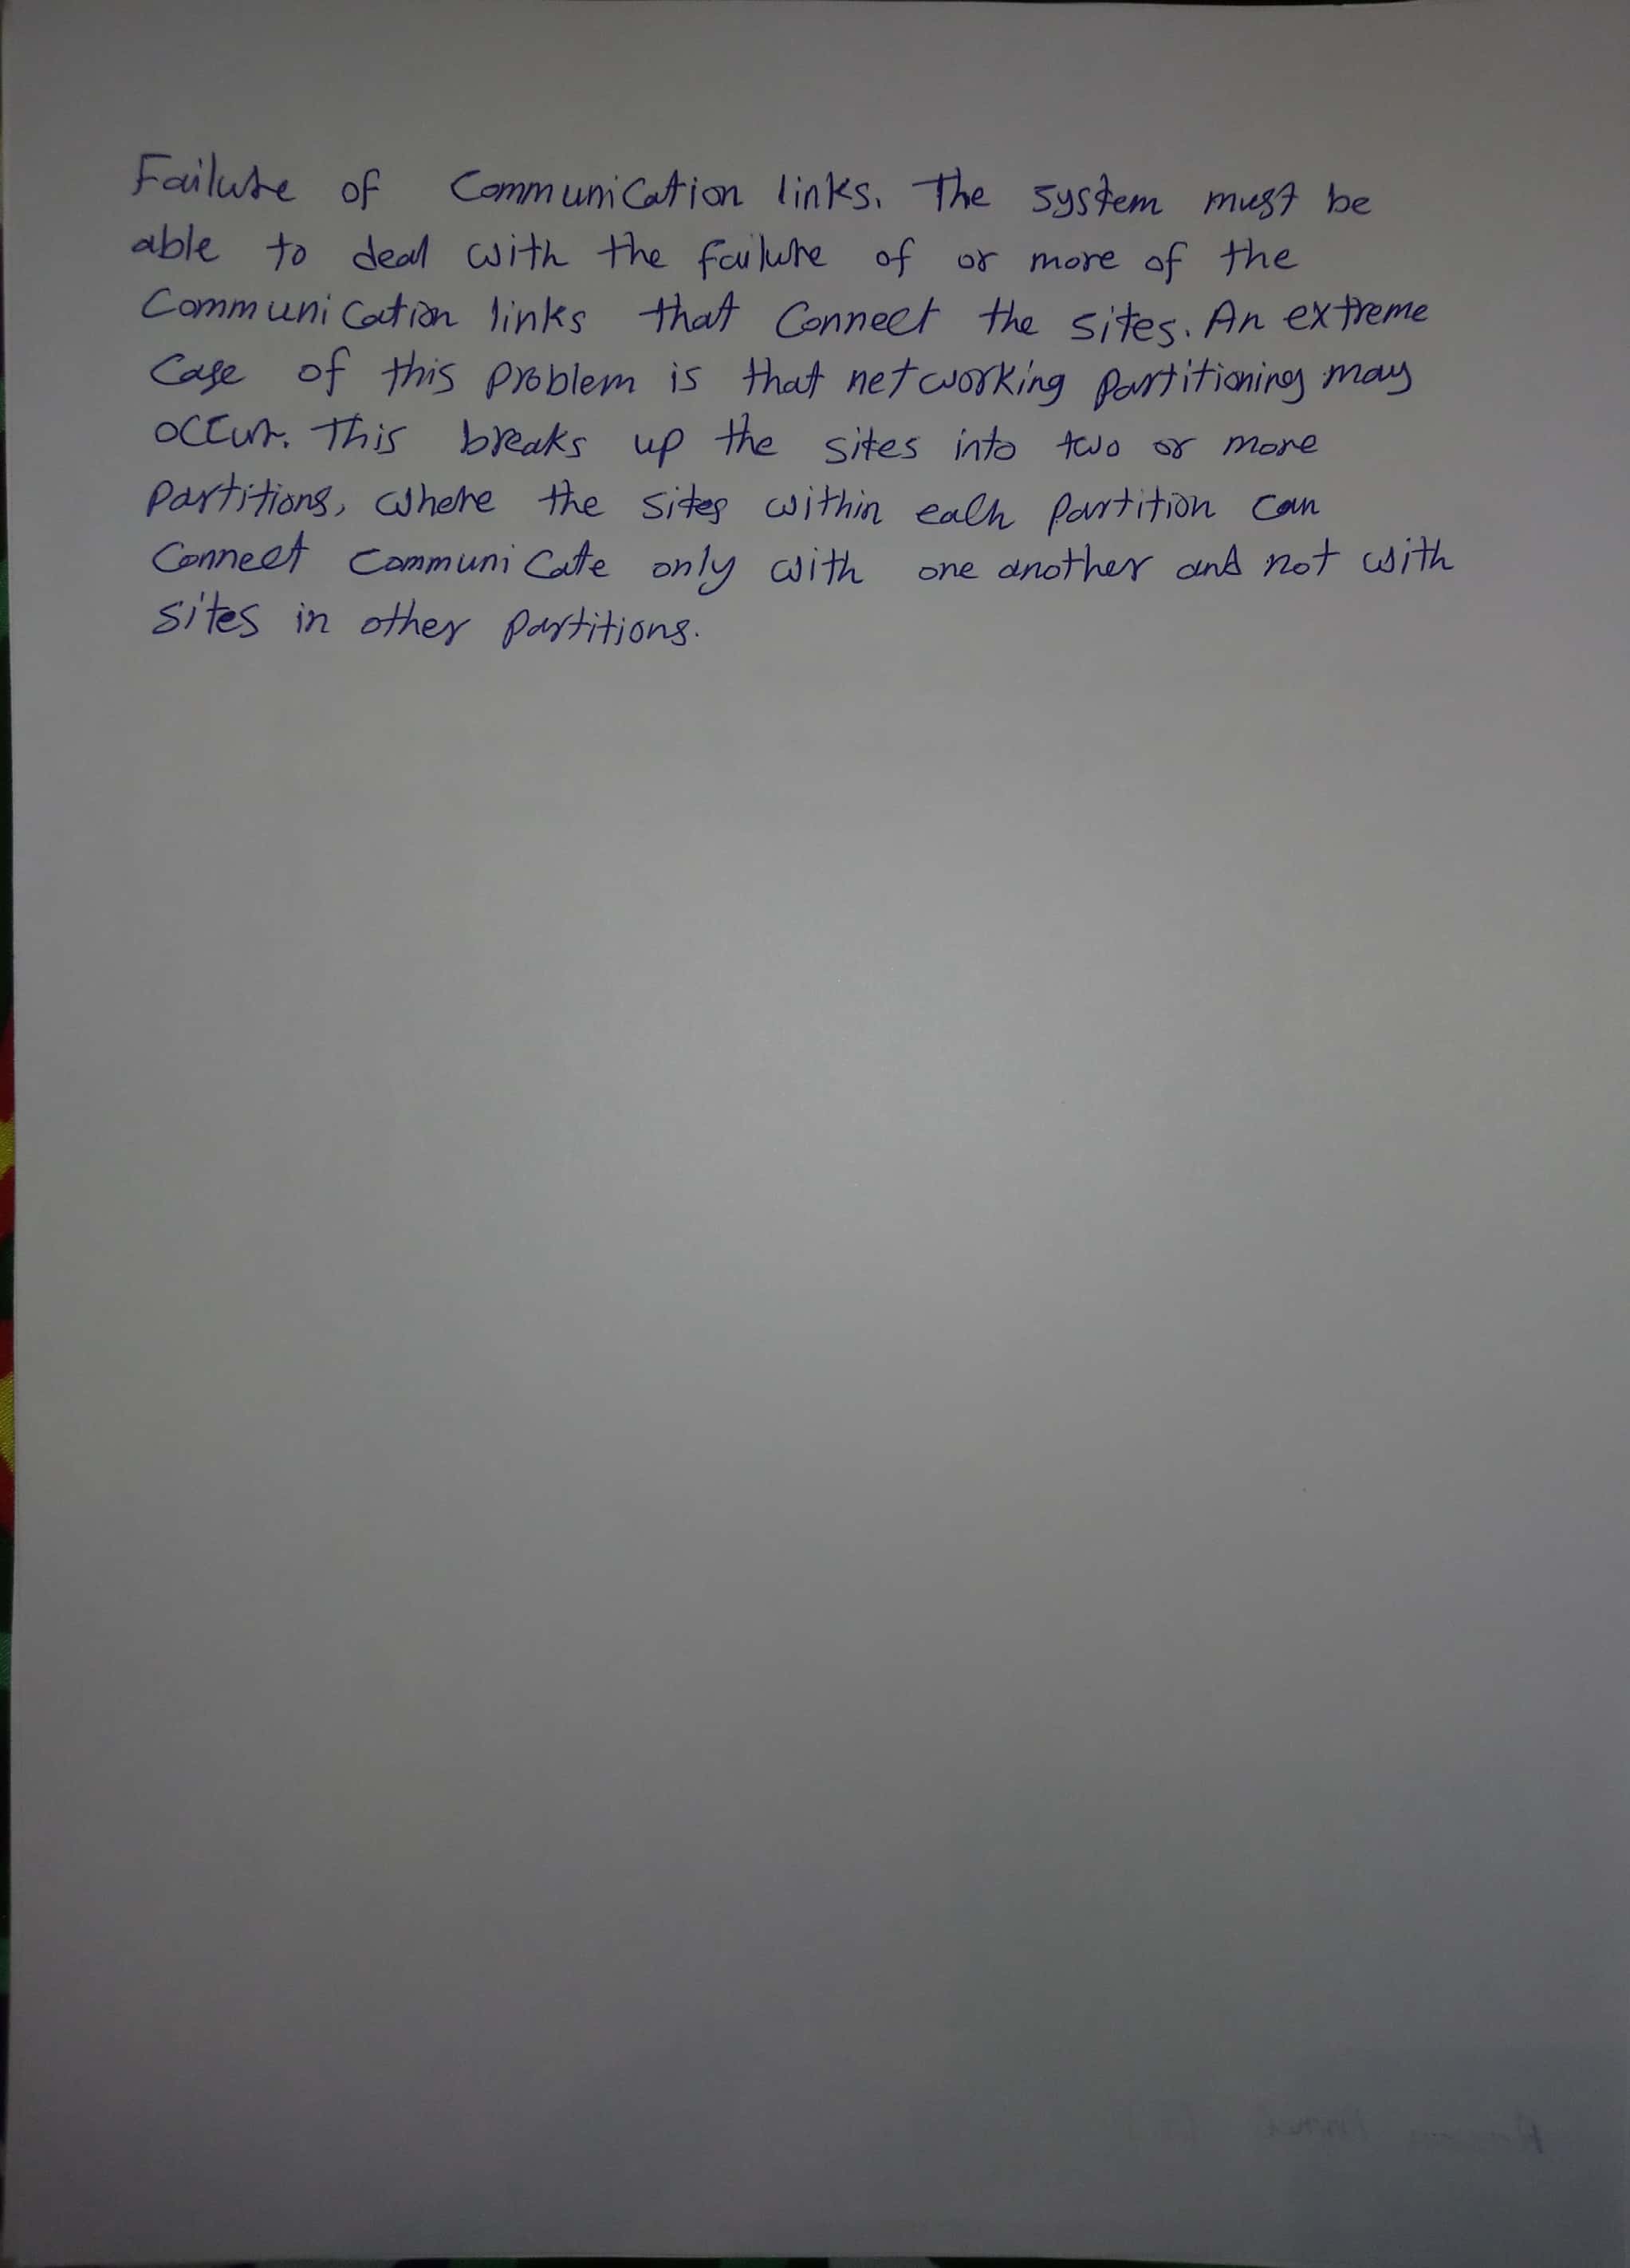 Failure of Communication links. The system must be
able to deal with the failure of or more of the
Communication links that Connect the sites. An extreme
Case of this problem is that networking partitioning may
occur. This breaks up the sites into two or more
partitions, where the sites within each partition can
Connect communicate only with one another and not with
sites in other partitions.